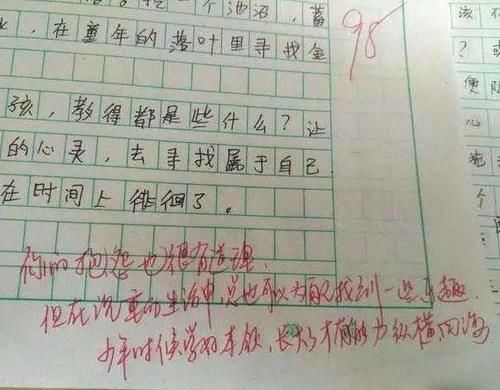 一个池沼，蓄
，在童年的落叶里寻找金
98
孩，教得都是些什么？让
的心灵，去寻找属于自己
在时间上徘徊了。
你的抱怨也很有道理，
但在沉重的生活中，总也可以为自己找到一些乐趣
少年时候学好本领，长大了才有能力纵横四海
该
？
便
心
个